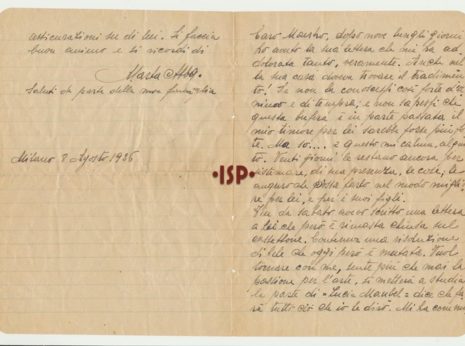 assicurazioni su di lui. Si faccia
buon animo e si ricordi di
Marta Abba
Saluti da parte della mia famiglia
Milano 8 Agosto 1926
ISP
Caro Maestro, dopo nove lunghi giorni
ho avuto la sua lettera che mi ha ad-
dolorata tanto, veramente. Anche nel
la sua casa doveva trovare il tradimen-
to! Se non la conoscessi così forte d'a-
nimo e di tempra; e non sapessi che
questa bufera è in parte passata il
mio timore per lei sarebbe forse più for-
te. Ma so.... e questo mi calma, alquan-
to. Venti giorni le restano ancora per
sistemare, di sua presenza, le cose; le
auguro che possa farlo nel modo miglio-
re per lei, e per i suoi figli.
Fin da sabato avevo scritto una lettera
a lei che però è rimasta chiusa nel
cassettone. Conteneva una risoluzione
di Lele che oggi però è mutata. Vuol
tornare con me, sente più che mai la
passione per l'arte, si metterà a studia
la parte di "Lucia Maubel" dice che fa
rà tutto ciò che io le dirò. Mi ha commo